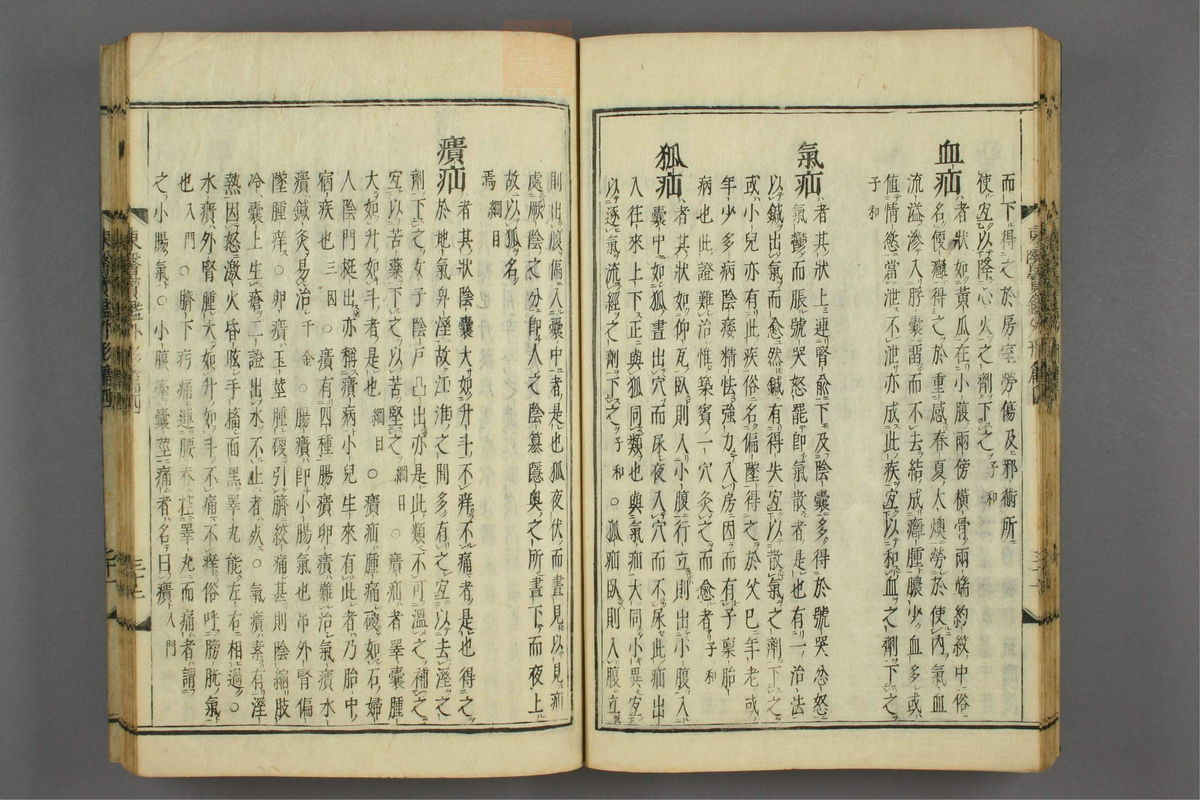 而下得之於房室勞傷及邪術所
使宜以降心火之劑下之子和
血疝
者狀如黃瓜在小腹兩傍橫骨兩端約紋中俗
名便癰得之於重感春夏大燠勞於使內氣血
流溢滲入脬囊留而不去結成癰腫膿少血多或
値情慾當泄不泄亦成此疾宜以和血之劑下之
子和
氣疝
者其狀上連腎兪下及陰囊多得於號哭忿怒
氣鬱而脹號哭怒罷卽氣散者是也有一治法
以鍼出氣而愈然鍼有得失宜以散氣之劑下之
或小兒亦有此疾俗名偏墜得之於父已年老或
年少多病陰痿精怯強力入房因而有子稟胎
病也此證難治惟築賓一穴灸之而愈者子和
狐疝
者其狀如仰瓦臥則入小腹行立則出小腹入
囊中如狐晝出穴而尿夜入穴而不尿此疝出
入往來上下正與狐同類也與氣疝大同小異宜
以逐氣流經之劑下之子和○狐疝臥則入腹立
則出腹偏入囊中者是也狐夜伏而晝見以見疝
處厥陰之分卽人之陰篡隱奧之所晝下而夜上
故以狐名
焉綱目
㿉疝
者其狀陰囊大如升斗不痒不痛者是也得之
於地氣卑濕故江淮之間多有之宜以去濕之
劑下之女子陰戶凸出亦是此類不可溫之補之
宜以苦藥下之以苦堅之綱目○㿉疝者睪囊腫
大如升如斗者是也綱目○㿉疝腫痛硬如石婦
人陰門挺出亦稱㿉病小兒生來有此者乃胎中
宿疾也三因○㿉有四種腸㿉卵㿉難治氣㿉水
㿉鍼灸易治千金○腸㿉卽小腸氣也吊外腎偏
墜腫痒○卵㿉玉莖腫硬引臍絞痛甚則陰縮肢
冷囊上生瘡二證出水不止者死○氣㿉素有濕
熱因怒激火昏眩手搐面黑睪丸能左右相過○
水㿉外腎腫大如升如斗不痛不痒俗呼膀胱氣
也入門○臍下㽲痛連腰牽控睪丸而痛者謂
之小腸氣也○小腹牽囊莖痛者名曰㿉入門